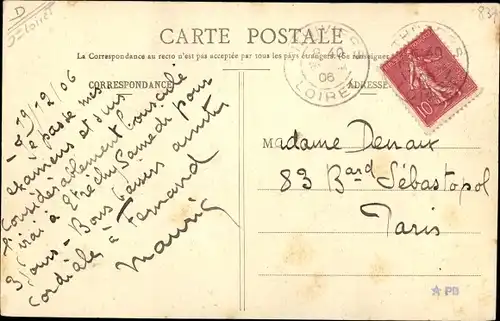 D
CARTE POSTALE
La Correspondance au recto n'est pas acceptée par tous les pays étrangers. (Se renseigner
CORRESPONDANCE
ADRESSE
8-40
06
LOIRET
10
19/12/06
Je passe mes
examens et suis
Considérablement bousculé
J'irai à Etréchy Samedi pour
3 jours - Bons baisers
cordiales à Fernand
Maurice
Madame Denaix
83 Bard Sébastopol
Paris
PD